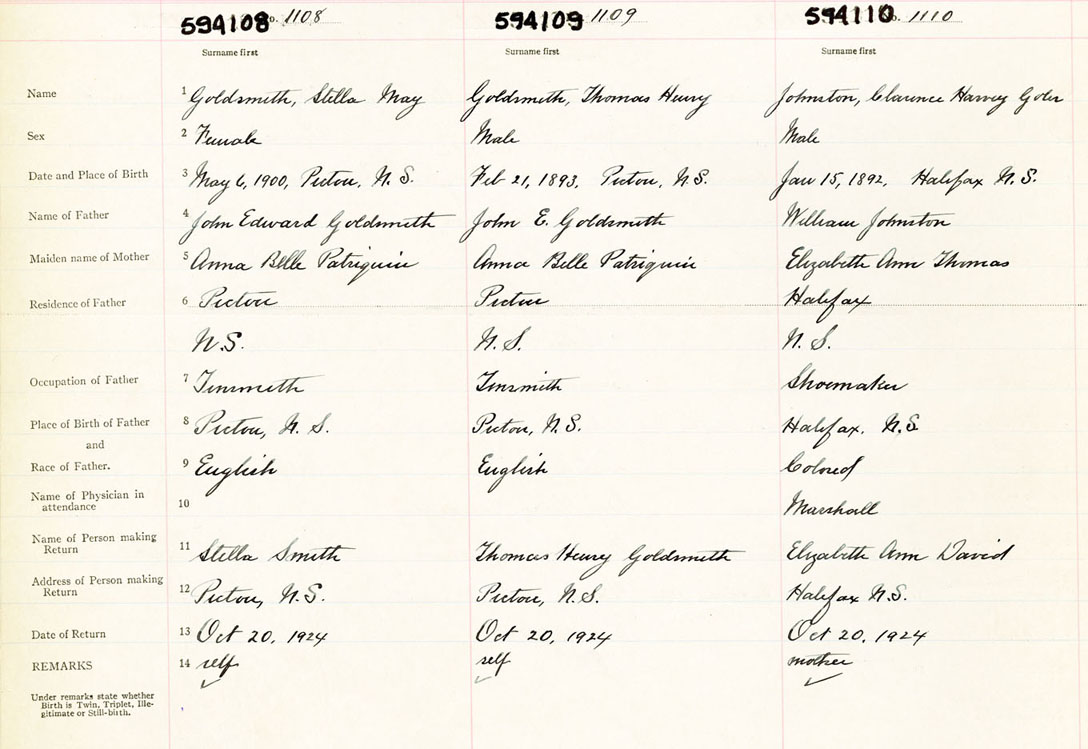 594108 No. 1108 594109 1109 594110 No. 1110
Surname first Surname first Surname first
Name 1 Goldsmith, Stella May Goldsmith, Thomas Henry Johnston, Clarence Harvey Goler
Sex 2 Female Male Male
Date and Place of Birth 3 May 6, 1900, Pictou, N.S. Feb 21, 1893, Pictou, N.S. Jan 15, 1892, Halifax N.S.
Name of Father 4 John Edward Goldsmith John E. Goldsmith William Johnston
Maiden name of Mother 5 Anna Belle Patriquin Anna Belle Patriquin Elizabeth Ann Thomas
Residence of Father 6 Pictou Pictou Halifax
N.S. N.S. N.S.
Occupation of Father 7 Tinsmith Tinsmith Shoemaker
Place of Birth of Father 8 Pictou, N.S. Pictou, N.S. Halifax. N.S
and
Race of Father. 9 English English Colored
Name of Physician in
attendance 10 Marshall
Name of Person making
Return 11 Stella Smith Thomas Henry Goldsmith Elizabeth Ann David
Address of Person making
Return 12 Pictou, N.S. Pictou, N.S. Halifax N.S.
Date of Return 13 Oct 20, 1924 Oct 20, 1924 Oct 20, 1924
REMARKS 14 self self mother
Under remarks state whether
Birth is Twin, Triplet, Ille-
gitimate or Still-birth.